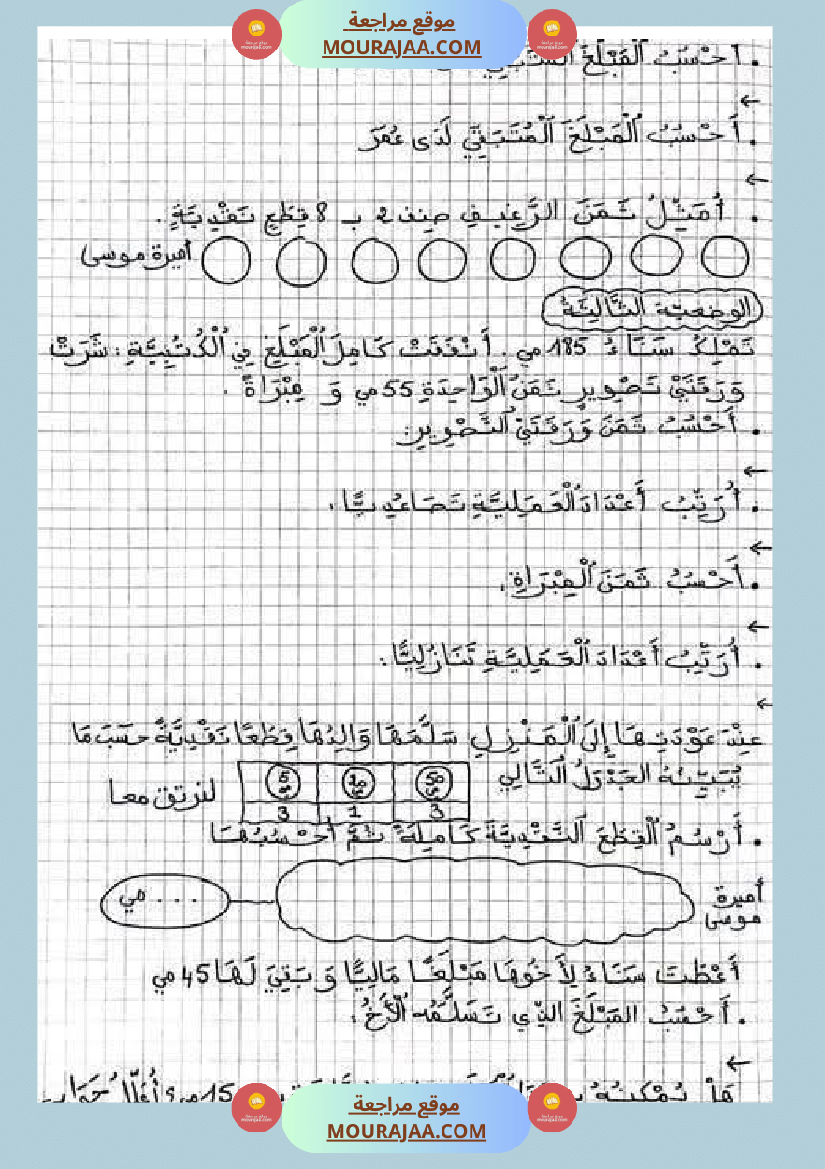 موقع مراجعة
MOURAJAA.COM
. أَحْسُبُ الْمَبْلَغَ
←
. أَحْسُبُ الْمَبْلَغَ الْمُتَبَقِّي لَدَى عُمَرَ
←
. أُمَثِّلُ ثَمَنَ الرَّغِيفِ صنف 2 بـ 8 قِطَعٍ نَقْدِيَّةٍ .
أميرة موسى
الوضعية الثَّالِثَةُ
تَمْلِكُ سَنَاءُ 185 مي . أَنْفَقَتْ كَامِلَ الْمَبْلَغِ فِي الْكُتُبِيَّةِ : شَرَتْ
وَرَقَتَيْ تَصْوِيرٍ ثَمَنُ الْوَاحِدَةِ 55 مي وَ مِبْرَاةً .
. أَحْسُبُ ثَمَنَ وَرَقَتَيْ التَّصْوِيرِ:
←
. أُرَتِّبُ أَعْدَادَ الْعَمَلِيَّةِ تَصَاعُدِيًّا .
←
. أَحْسُبُ ثَمَنَ الْمِبْرَاةِ .
←
. أُرَتِّبُ أَعْدَادَ الْعَمَلِيَّةِ تَنَازُلِيًّا :
←
عِنْدَ عَوْدَتِهَا إِلَى الْمَنْزِلِ سَلَّمَهَا وَالِدُهَا قِطَعًا نَقْدِيَّةً حَسَبَ مَا
يُبَيِّنُهُ الجَدْوَلُ الْتَّالِي
50 مي 10 مي 5 مي
3 1 3
لنرتق معا
. أَرْسُمُ الْقِطَعَ النَّقْدِيَّةَ كَامِلَةً ثُمَّ أَحْسُبُهَا
أميرة
موسى
... مي
أَعْطَتْ سَنَاءُ لِأَخُوهَا مَبْلَغًا مَالِيًّا وَ بَقِيَ لَهَا 45 مي
. أَحْسُبُ المَبْلَغَ الذِّي تَسَلَّمَهُ الْأَخُ .
←
هَلْ يُمْكِنُهُ
موقع مراجعة
MOURAJAA.COM